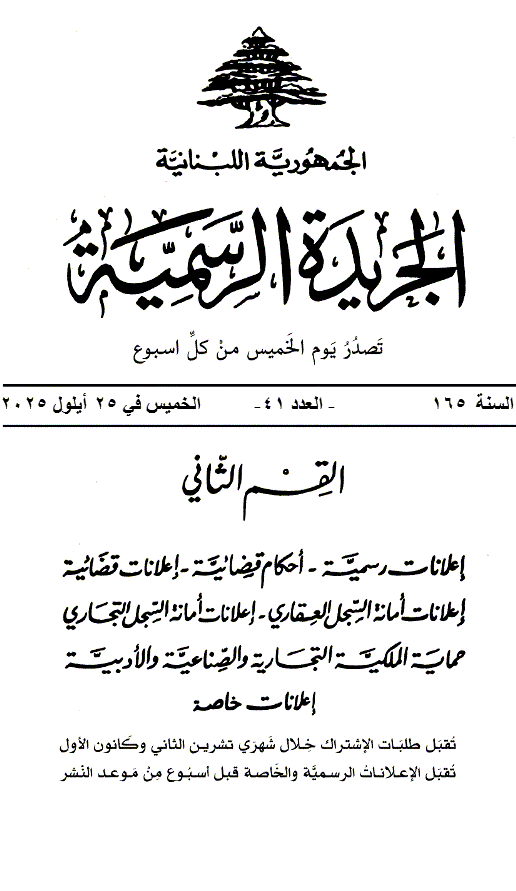 الجمهوريَّة اللبنانيَّة
الجريدة الرسميَّة
تَصدُرُ يَوم الخَميس منْ كلِّ اسبوع
السنة ١٦٥ - العدد ٤١- الخميس في ٢٥ أيلول ٢٠٢٥
القِسْم الثّاني
إعلانات رسميَّة - أحكام قضائيَّة - إعلانات قضائية
إعلانات أمانة السّجل العقاري - إعلانات أمانة السّجل التجاري
حماية الملكيَّة التجارية والصّناعيَّة والأدبيَّة
إعلانات خاصة
تُقبَل طلبَات الإشتراك خِلال شَهرَي تشرين الثاني وكَانون الأول
تُقبَل الإعلانات الرسميَّة والخَاصة قبل أسبُوع مِنْ مَوعد النّشر